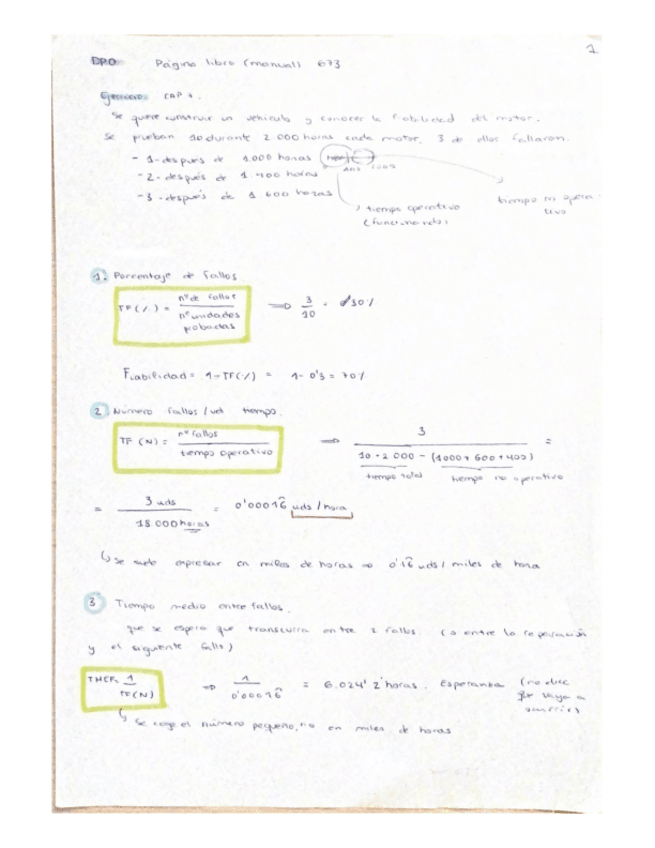 1.
DPO Página libro (manual) 673
Ejercicio CAP 4.
Se quiere construir un vehículo y conocer la fiabilidad del motor.
Se prueban 10 durante 2.000 horas cada motor. 3 de ellos fallaron.
- 1 - después de 1.000 horas
- 2 - después de 1.400 horas
- 3 - después de 1.600 horas
tiempo operativo
(funcionando)
tiempo no opera-
tivo
1. Porcentaje de fallos
TF(%) = nº de fallos / nº unidades probadas ⇒ 3/10 = 30%
Fiabilidad = 1 - TF(%) = 1 - 0'3 = 70%
2. Número fallos / ud tiempo.
TF (N) = nº fallos / tiempo operativo ⇒ 3 / 10 · 2.000 - (1000 + 600 + 400) =
tiempo total tiempo no operativo
= 3 uds / 18.000 horas = 0'00016 uds / hora
Se suele expresar en miles de horas ⇒ 0'16 uds / miles de hora
3 Tiempo medio entre fallos.
que se espera que transcurra entre 2 fallos (o entre la reparación
y el siguiente fallo)
TMEF = 1 / TF(N) ⇒ 1 / 0'00016 = 6.024'2 horas. Esperanza (no dice
que vaya a
ocurrir)
Se coge el número pequeño, no en miles de horas